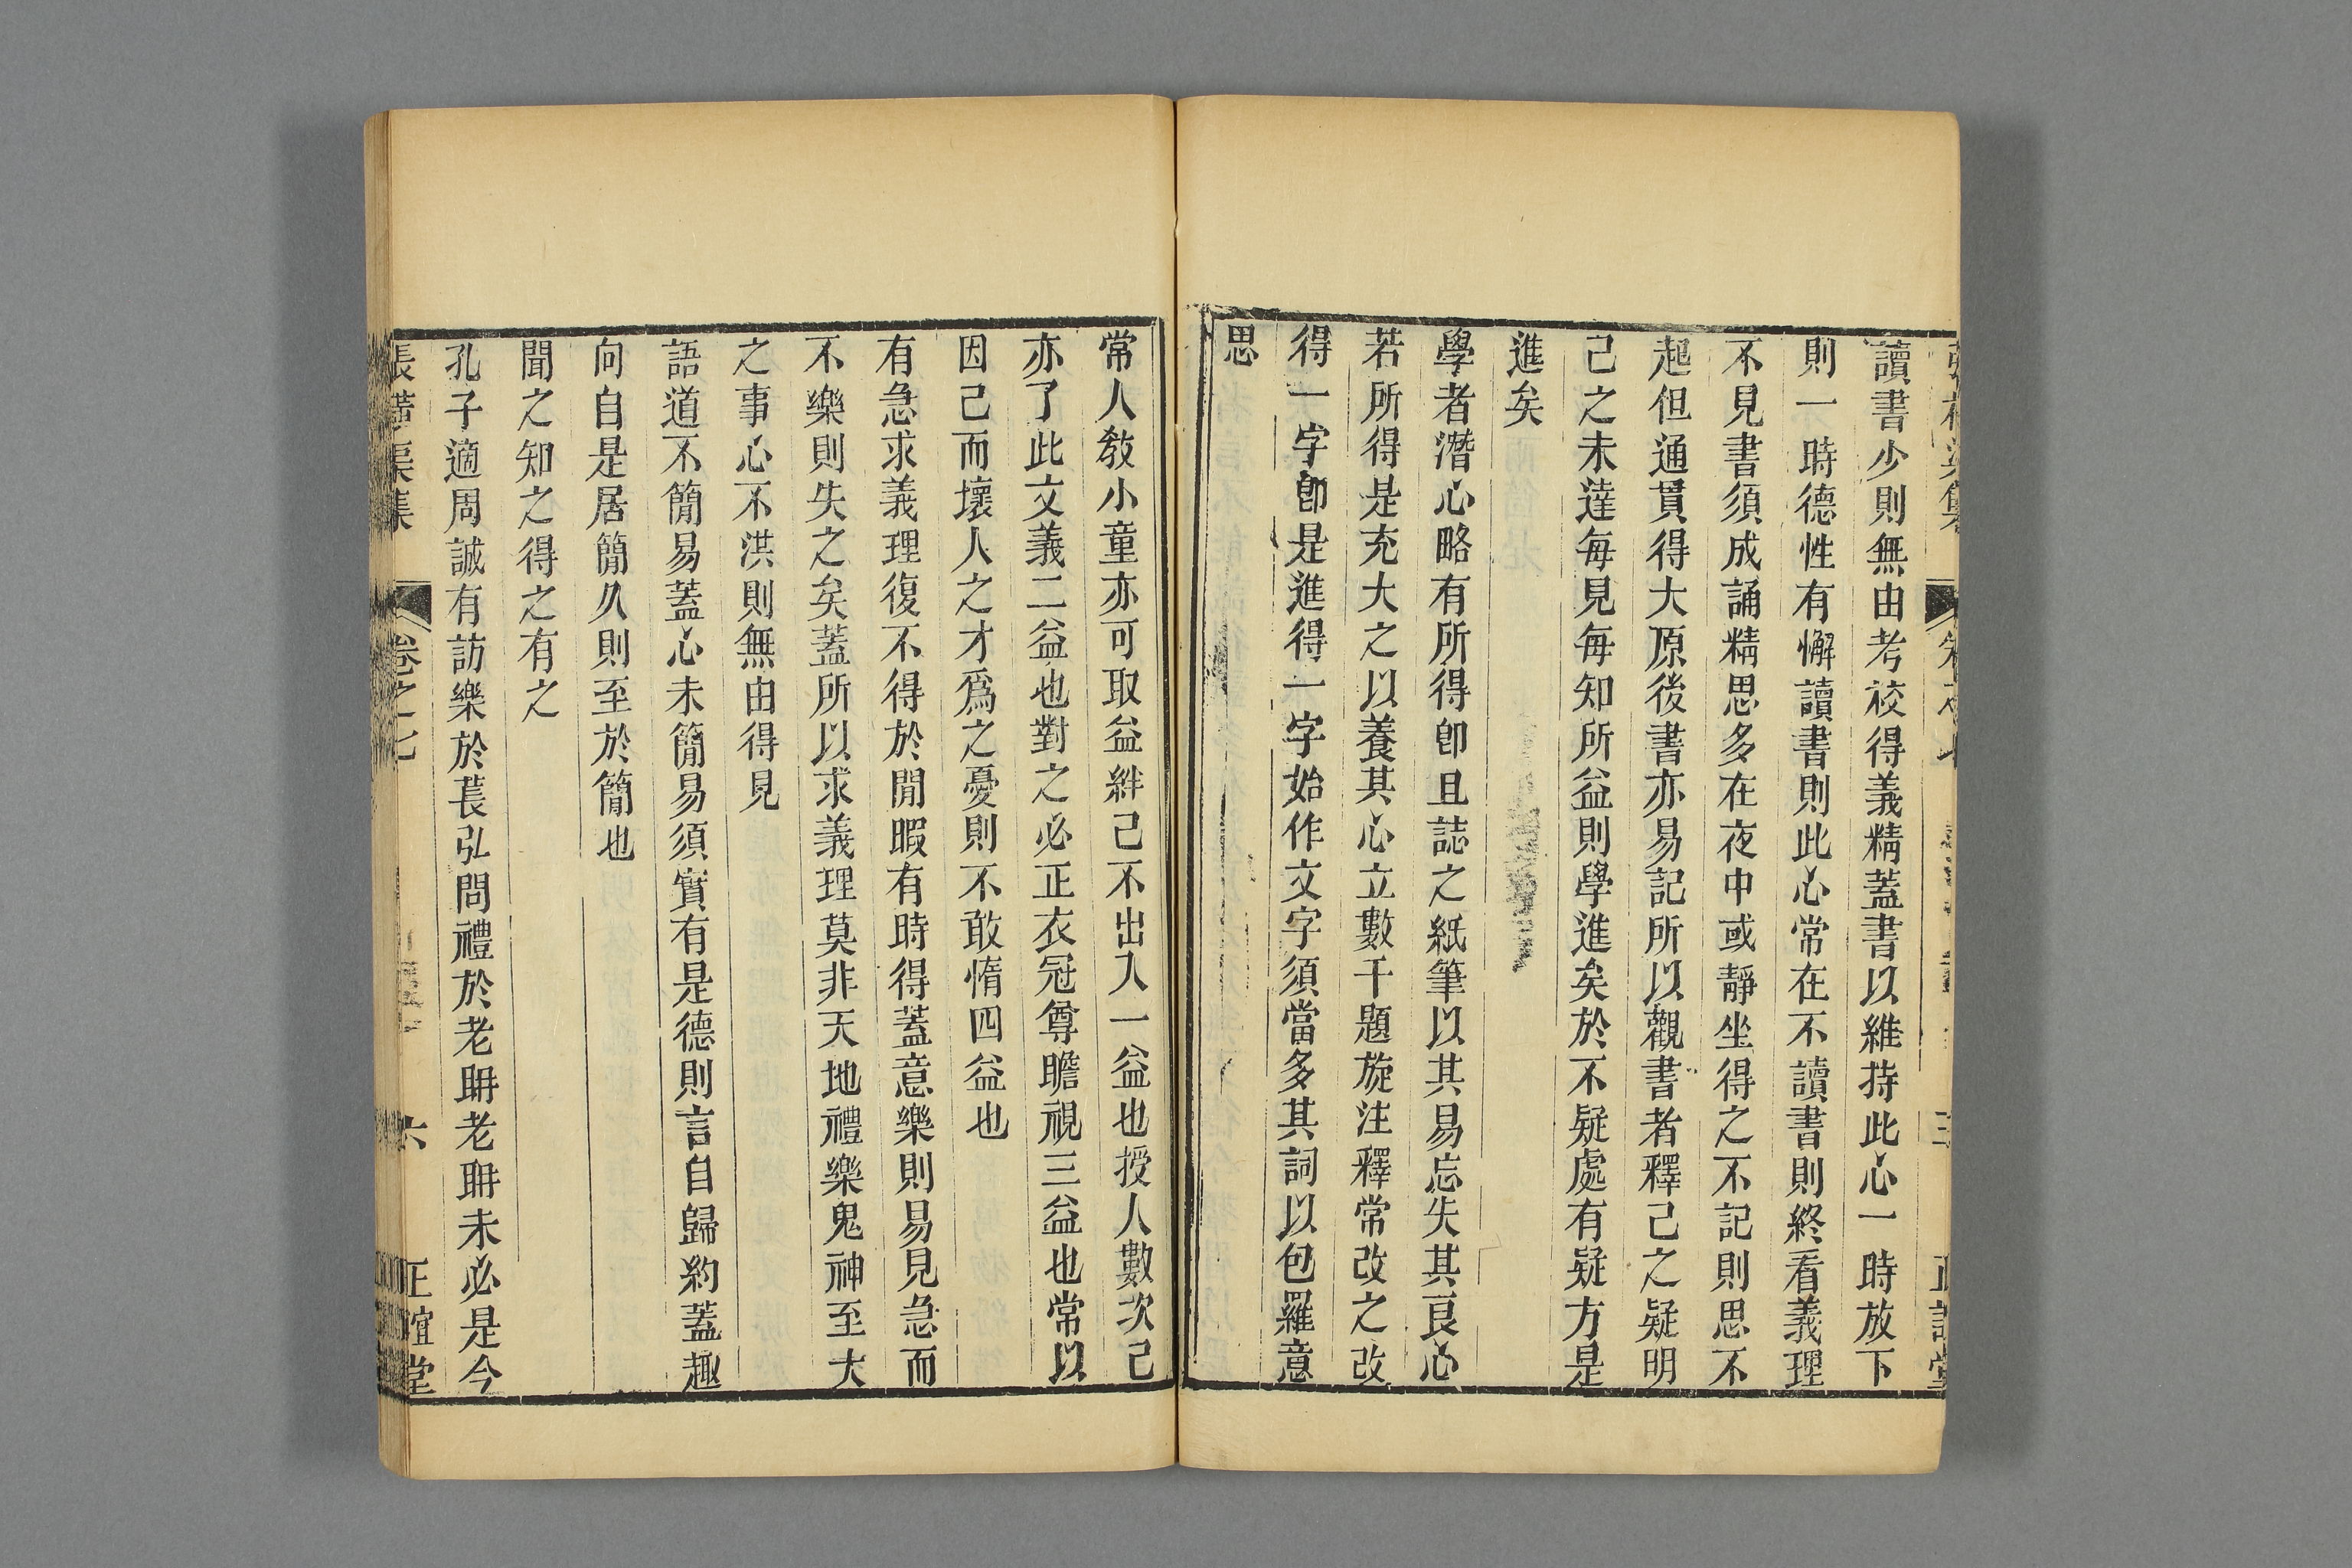 讀書少則無由考校得義精蓋書以維持此心一時放下
則一時德性有懈讀書則此心常在不讀書則終看義理
不見書須成誦精思多在夜中或靜坐得之不記則思不
起但通貫得大原後書亦易記所以觀書者釋己之疑明
己之未達每見每知所益則學進矣於不疑處有疑方是
進矣
學者潛心略有所得卽且誌之紙筆以其易忘失其良心
若所得是充大之以養其心立數千題旋注釋常改之改
得一字卽是進得一字始作文字須當多其詞以包羅意
思
常人教小童亦可取益絆己不出入一益也授人數次己
亦了此文義二益也對之必正衣冠尊瞻視三益也常以
因己而壞人之才爲之憂則不敢惰四益也
有急求義理復不得於閒暇有時得蓋意樂則易見急而
不樂則失之矣蓋所以求義理莫非天地禮樂鬼神至大
之事心不洪則無由得見
語道不簡易蓋心未簡易須實有是德則言自歸約蓋趣
向自是居簡久則至於簡也
聞之知之得之有之
孔子適周誠有訪樂於萇弘問禮於老聃老聃未必是今
張橫渠集 卷之七 六 正誼堂